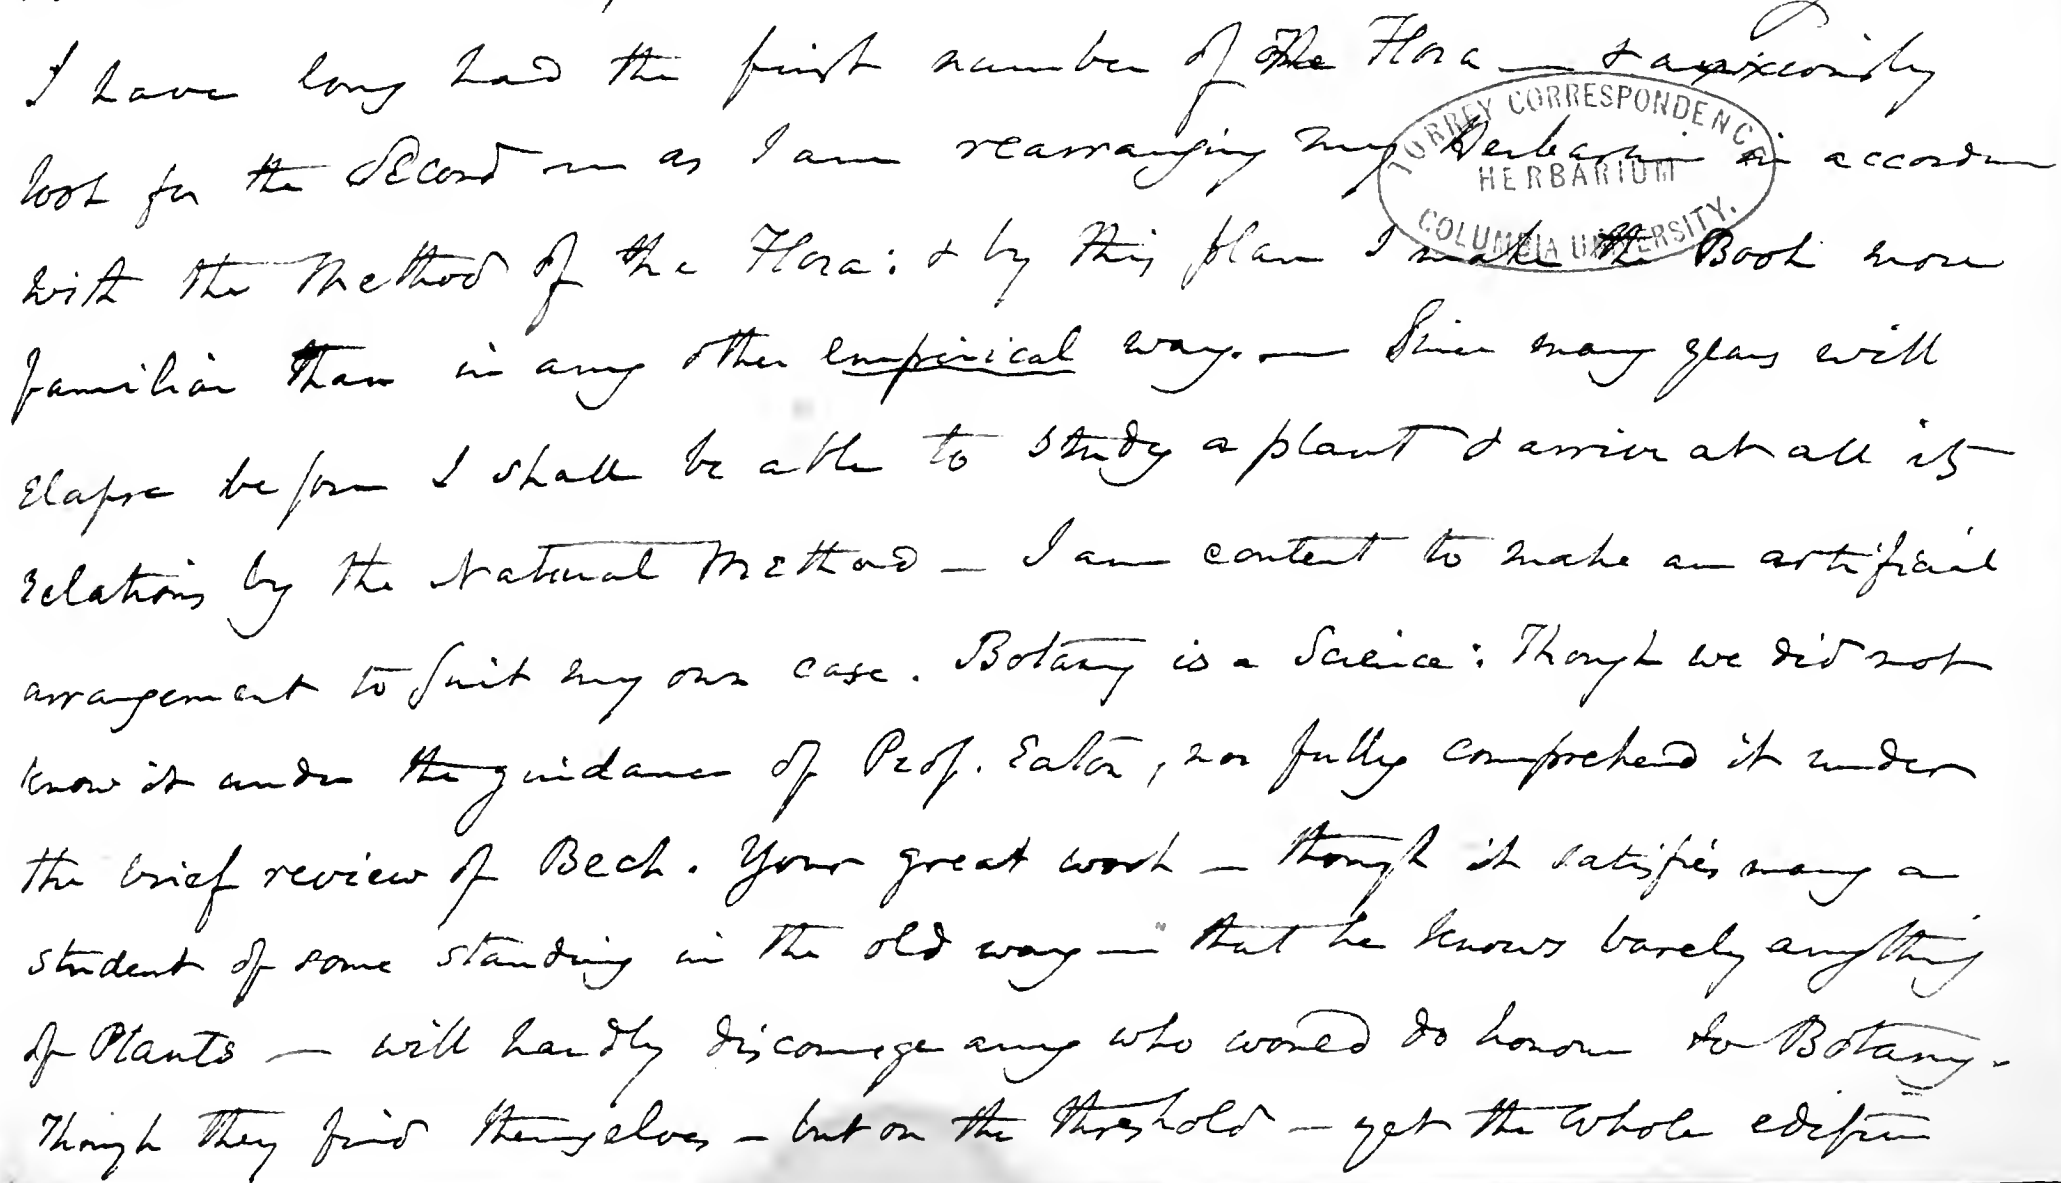 I have long had the first number of the Flora — & anxiously
TORREY CORRESPONDENCE
HERBARIUM
COLUMBIA UNIVERSITY.
look for the Second — as I am rearranging my Herbarium in accordance
with the Method of the Flora: & by this plan I make the Book more
familiar than in any other empirical way. — Since many years will
elapse before I shall be able to study a plant & arrive at all its
relations by the Natural Method — I am content to make an artificial
arrangement to suit my own case. Botany is a Science: Though we did not
know it under the guidance of Prof. Eaton, nor fully comprehend it under
the brief review of Beck. Your great work — though it satisfies many a
student of some standing in the old way — that he knows barely anything
of Plants — will hardly discourage any who would do honour to Botany.
Though they find themselves — but on the threshold — yet the whole edifice